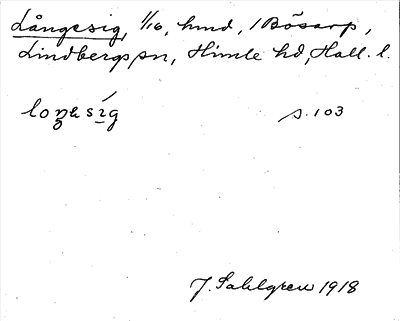 Långesig, 1/16, hmd, i Bösarp,
Lindbergs sn, Himle hd, Hall. l.
loŋesíg s. 103
J. Sahlgren 1918